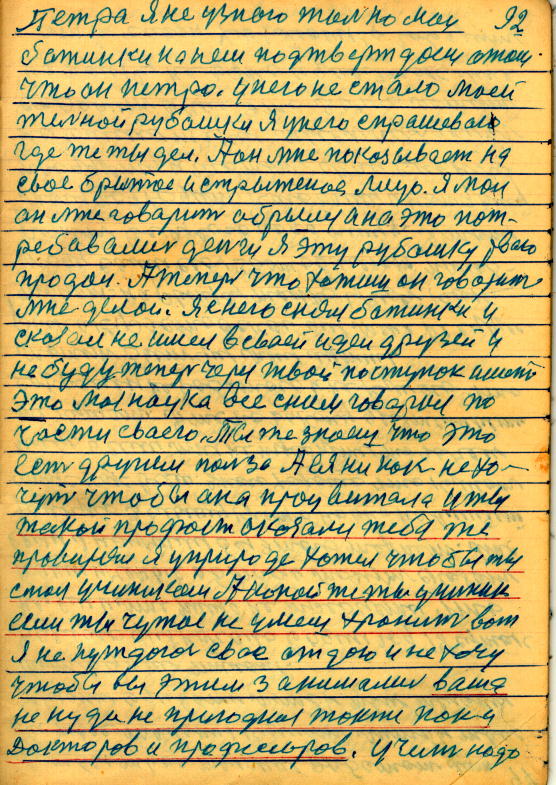 Петра Я не узнаю только мои 92
батинки на нем подтверждом этом
что он петро. у него не стало моей
темной рубашки Я у него спрашеваю
где же ты дел. А он мне показывает на
свое брытое и стрыженое лицо. Я мол
он мне говарить обрылиу а на это пот-
ребавались денги Я эту рубашку
продал. А теперь что хотиш он говарить
мне делой. Я с него снял батинки и
сказал не имел в сваей идеи друзей и
не буду теперь через твой поступок иметь
Это моя наука все с ним говарил по
части сваего. Ты же знаеш что Это
есть другим полза А вы никак не хо-
чете чтобы она процвитала и ты
такой прохвост оказался тебя же
проверял Я у природе хотел чтобы ты
стал учиником А какой же ты учиник
если ты чужое не умееш хранить вот
Я не нуждаюс свое отдою и не хочу
чтобы вы этим занимались ваша
не куда не пригодная токже как и
Докторов и професоров. Учить надо